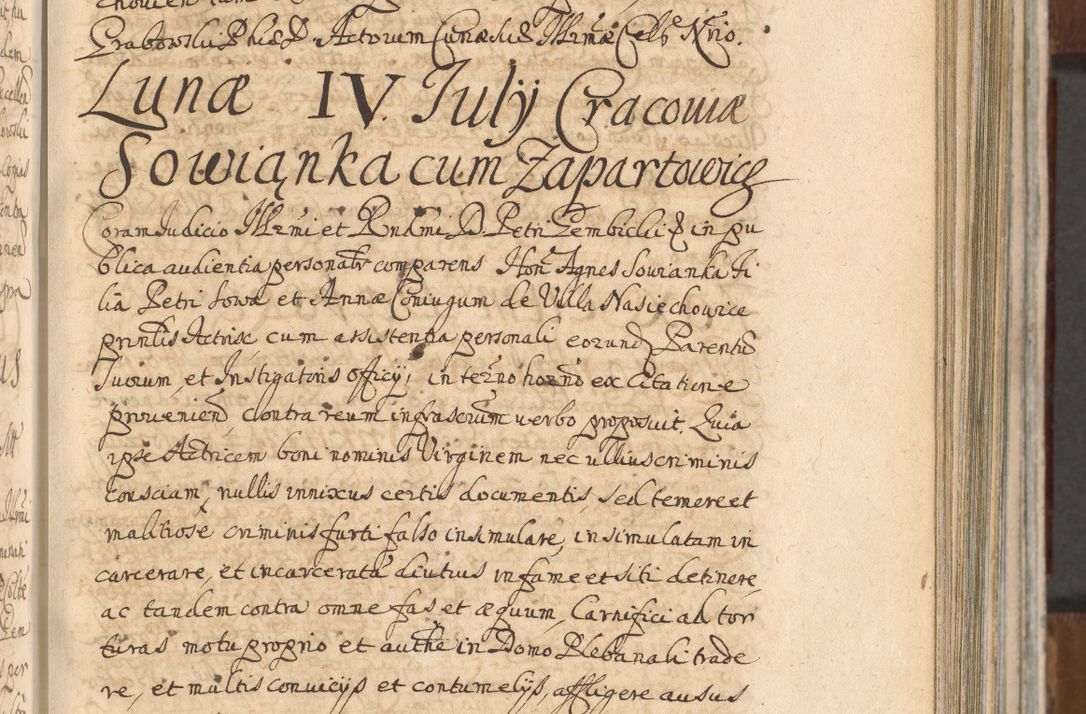 Grabowski P his D. Actorum Curiæ suæ Illrmæ Celb Nrio.
Lunæ IV. Iulij Cracouiæ
Sowiąnka cum Zapartowicz
Coram Iudicio Illrmi et Rndmi D. Petri Gembicki & in pu
blica audientia personalr comparens Hon Agnes Sowianka Fi
lia Petri Sowa et Annæ Coniugum de Villa Nasiechowice
prinlis Actrise cum assistentia personali eorund Parentu
suorum, et Instigatoris officij, in terno horno ex Citatione
prouenien, contra reum infrascrum verbo proposuit. Quia
ipse Actricem boni nominis Virginem nec ullius criminis
consciam, nullis innixus certis documentis, sed temere et
malitiose criminis furti falso insimulare, insimulatam in
carcerare, et incarceratā diutius in fame et siti detinere,
ac tandem contra omne fas et æquum, Carnifici ad tor
turas motu proprio et authe in Domo Plebanali trade
re, et multis conuicijs et contumelijs, affligere ausus